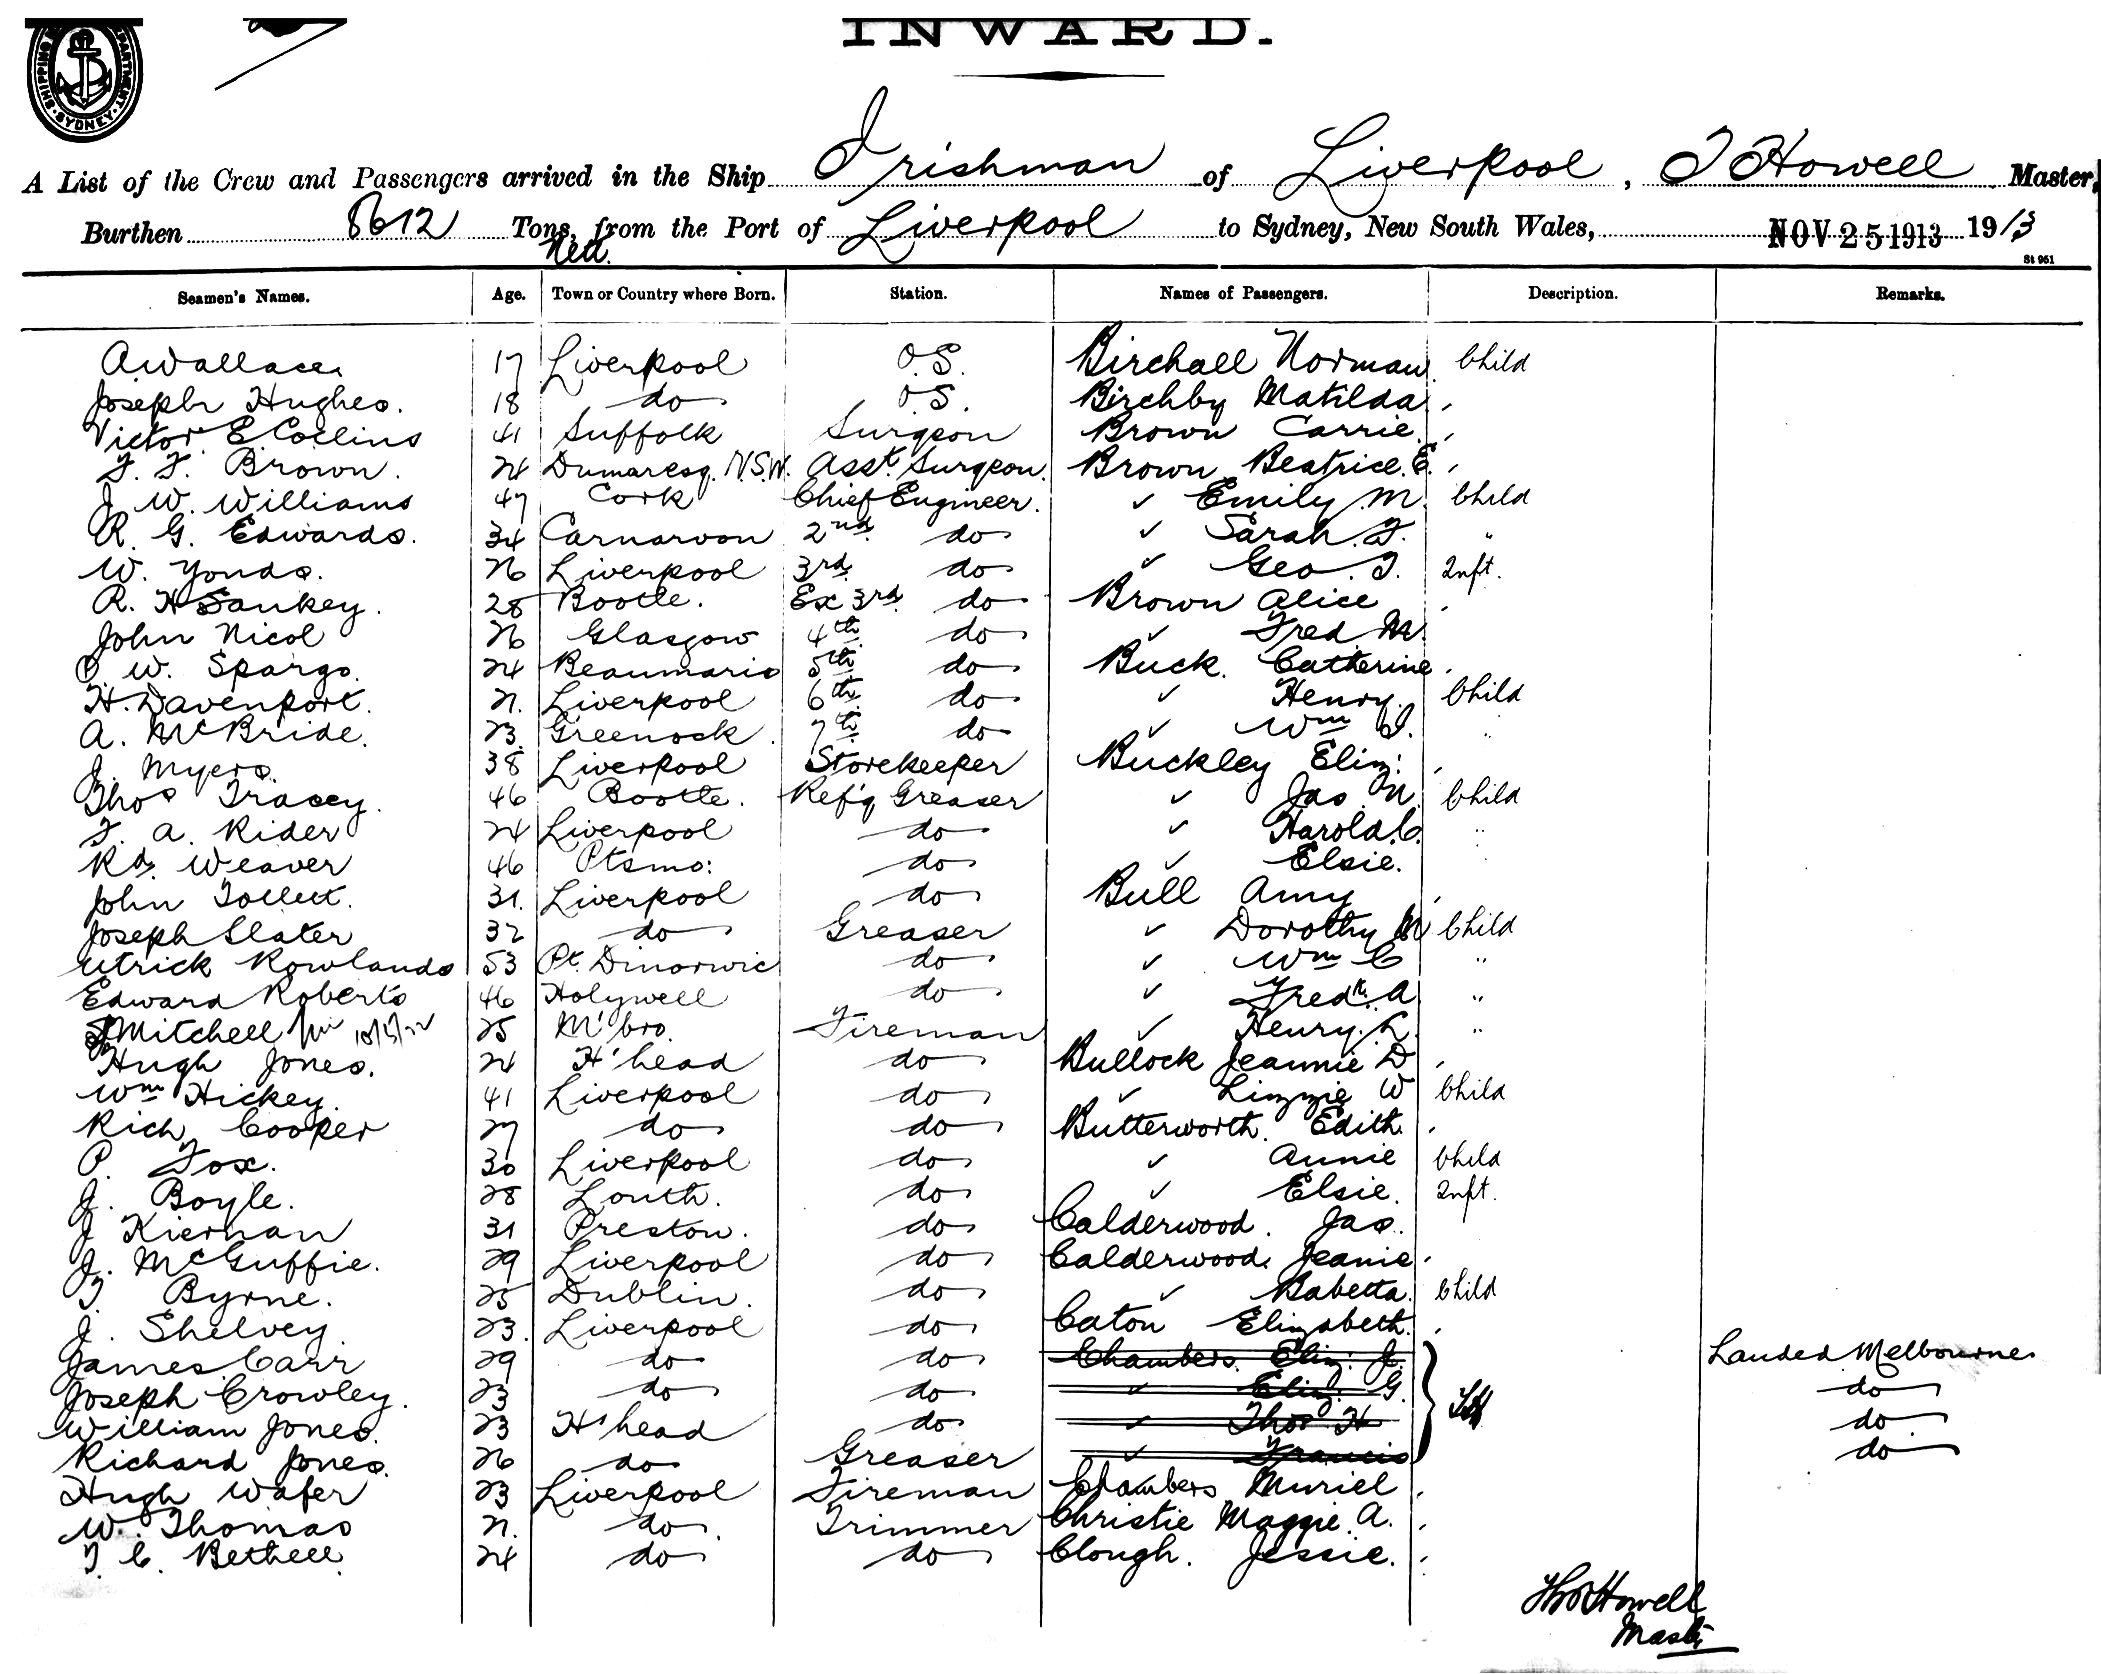 INWARD.
SHIPPING DEPARTMENT. SYDNEY.
A List of the Crew and Passengers arrived in the Ship Irishman of Liverpool, T Howell Master,
Burthen 8612 Tons, from the Port of Liverpool to Sydney, New South Wales, NOV 25 1913 1913
Nett.
St 961
Seamen's Names. Age. Town or Country where Born. Station. Names of Passengers. Description. Remarks.
A Wallace 17 Liverpool O.S. Birchall Norman Child
Joseph Hughes. 18 do O.S. Birchby Matilda
Victor E Collins 41 Suffolk Surgeon Brown Carrie
F. F. Brown. 24 Dumaresq. N.S.W. Asst. Surgeon. Brown Beatrice. E.
J. W. Williams 47 Cork Chief Engineer. ✓ Emily. M. Child
R. G. Edwards. 34 Carnarvon 2nd do ✓ Sarah. F. "
W. Yonds. 26 Liverpool 3rd do ✓ Geo. T. Inft.
R. H Sankey. 28 Bootle. Ex 3rd do Brown Alice
John Nicol 26 Glasgow 4th do ✓ Fred M.
O W. Spargo. 24 Beaumaris 5th do Buck. Catherine
H. Davenport. 21. Liverpool 6th do ✓ Henry. Child
A. McBride. 23. Greenock. 7th do ✓ Wm J. "
J. Myers. 38 Liverpool Storekeeper Buckley Eliz:
Thos Tracey. 46 Bootle. Ref'g Greaser ✓ Jas. N. Child
F. A. Rider 24 Liverpool do ✓ Harold. C. "
Rd. Weaver 46 Ptsmo: do ✓ Elsie. "
John Tollett. 31. Liverpool do Bull Amy
Joseph Slater 32 do Greaser ✓ Dorothy M Child
Utrick Rowlands 53 Pt. Dinorwic do ✓ Wm C "
Edward Roberts 46 Holywell do ✓ Fredk. A "
Mitchell 25 M'bro. Fireman ✓ Henry. L. "
Hugh Jones. 24 H'head do Bullock Jeannie D
Wm Hickey. 41 Liverpool do ✓ Lizzie W Child
Rich Cooper 27 do do Butterworth. Edith.
P. Fox. 30 Liverpool do ✓ Annie Child
J. Boyle. 28 Louth. do ✓ Elsie. Inft.
J Kiernan 31 Preston. do Calderwood. Jas.
J. McGuffie. 29 Liverpool do Calderwood. Jeanie
T. Byrne. 25 Dublin. do ✓ Babetta. Child
J. Shelvey. 23. Liverpool do Caton Elizabeth.
James Carr 29 do do Chambers. Eliz: J. Landed Melbourne
Joseph Crowley. 23 do do ✓ Eliz: G. do
William Jones. 23 H'head do ✓ Thos H do
Richard Jones. 26 do Greaser ✓ Francis do
Hugh Wafer 23 Liverpool Fireman Chambers Muriel
W. Thomas 21. do. Trimmer Christie Maggie. A.
T. C. Bethell. 24 do do Clough. Jessie.
Thos Howell
Master